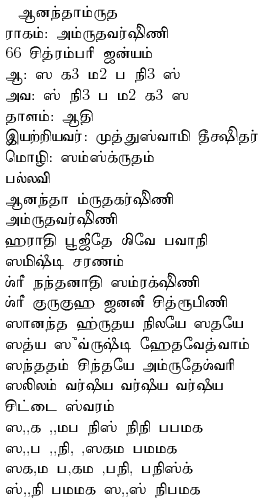 ஆனந்தாம்ருத
ராகம்: அம்ருதவர்ஷிணி
66 சித்ரம்பரி ஜன்யம்
ஆ: ஸ க3 ம2 ப நி3 ஸ்
அவ: ஸ் நி3 ப ம2 க3 ஸ
தாளம்: ஆதி
இயற்றியவர்: முத்துஸ்வாமி தீக்ஷிதர்
மொழி: ஸம்ஸ்க்ருதம்
பல்லவி
ஆனந்தா ம்ருதகர்ஷிணி
அம்ருதவர்ஷிணி
ஹராதி பூஜிதே ஶிவே பவானி
ஸமிஷ்டி சரணம்
ஶ்ரீ நந்தனாதி ஸம்ரக்ஷிணி
ஶ்ரீ குருகுஹ ஜனனீ சித்ரூபிணி
ஸானந்த ஹ்ருதய நிலயே ஸதயே
ஸத்ய ஸுவ்ருஷ்டி ஹேதவேத்வாம்
ஸந்ததம் சிந்தயே அம்ருதேஶ்வரி
ஸலிலம் வர்ஷய வர்ஷய வர்ஷய
சிட்டை ஸ்வரம்
ஸ,,க ,,மப நிஸ் நிநி பபமக
ஸ,,ப ,,நி, ,ஸகம பமமக
ஸக,ம ப,கம ,பநி, பநிஸ்க்
ஸ்,,நி பமமக ஸ,,ஸ் நிபமக